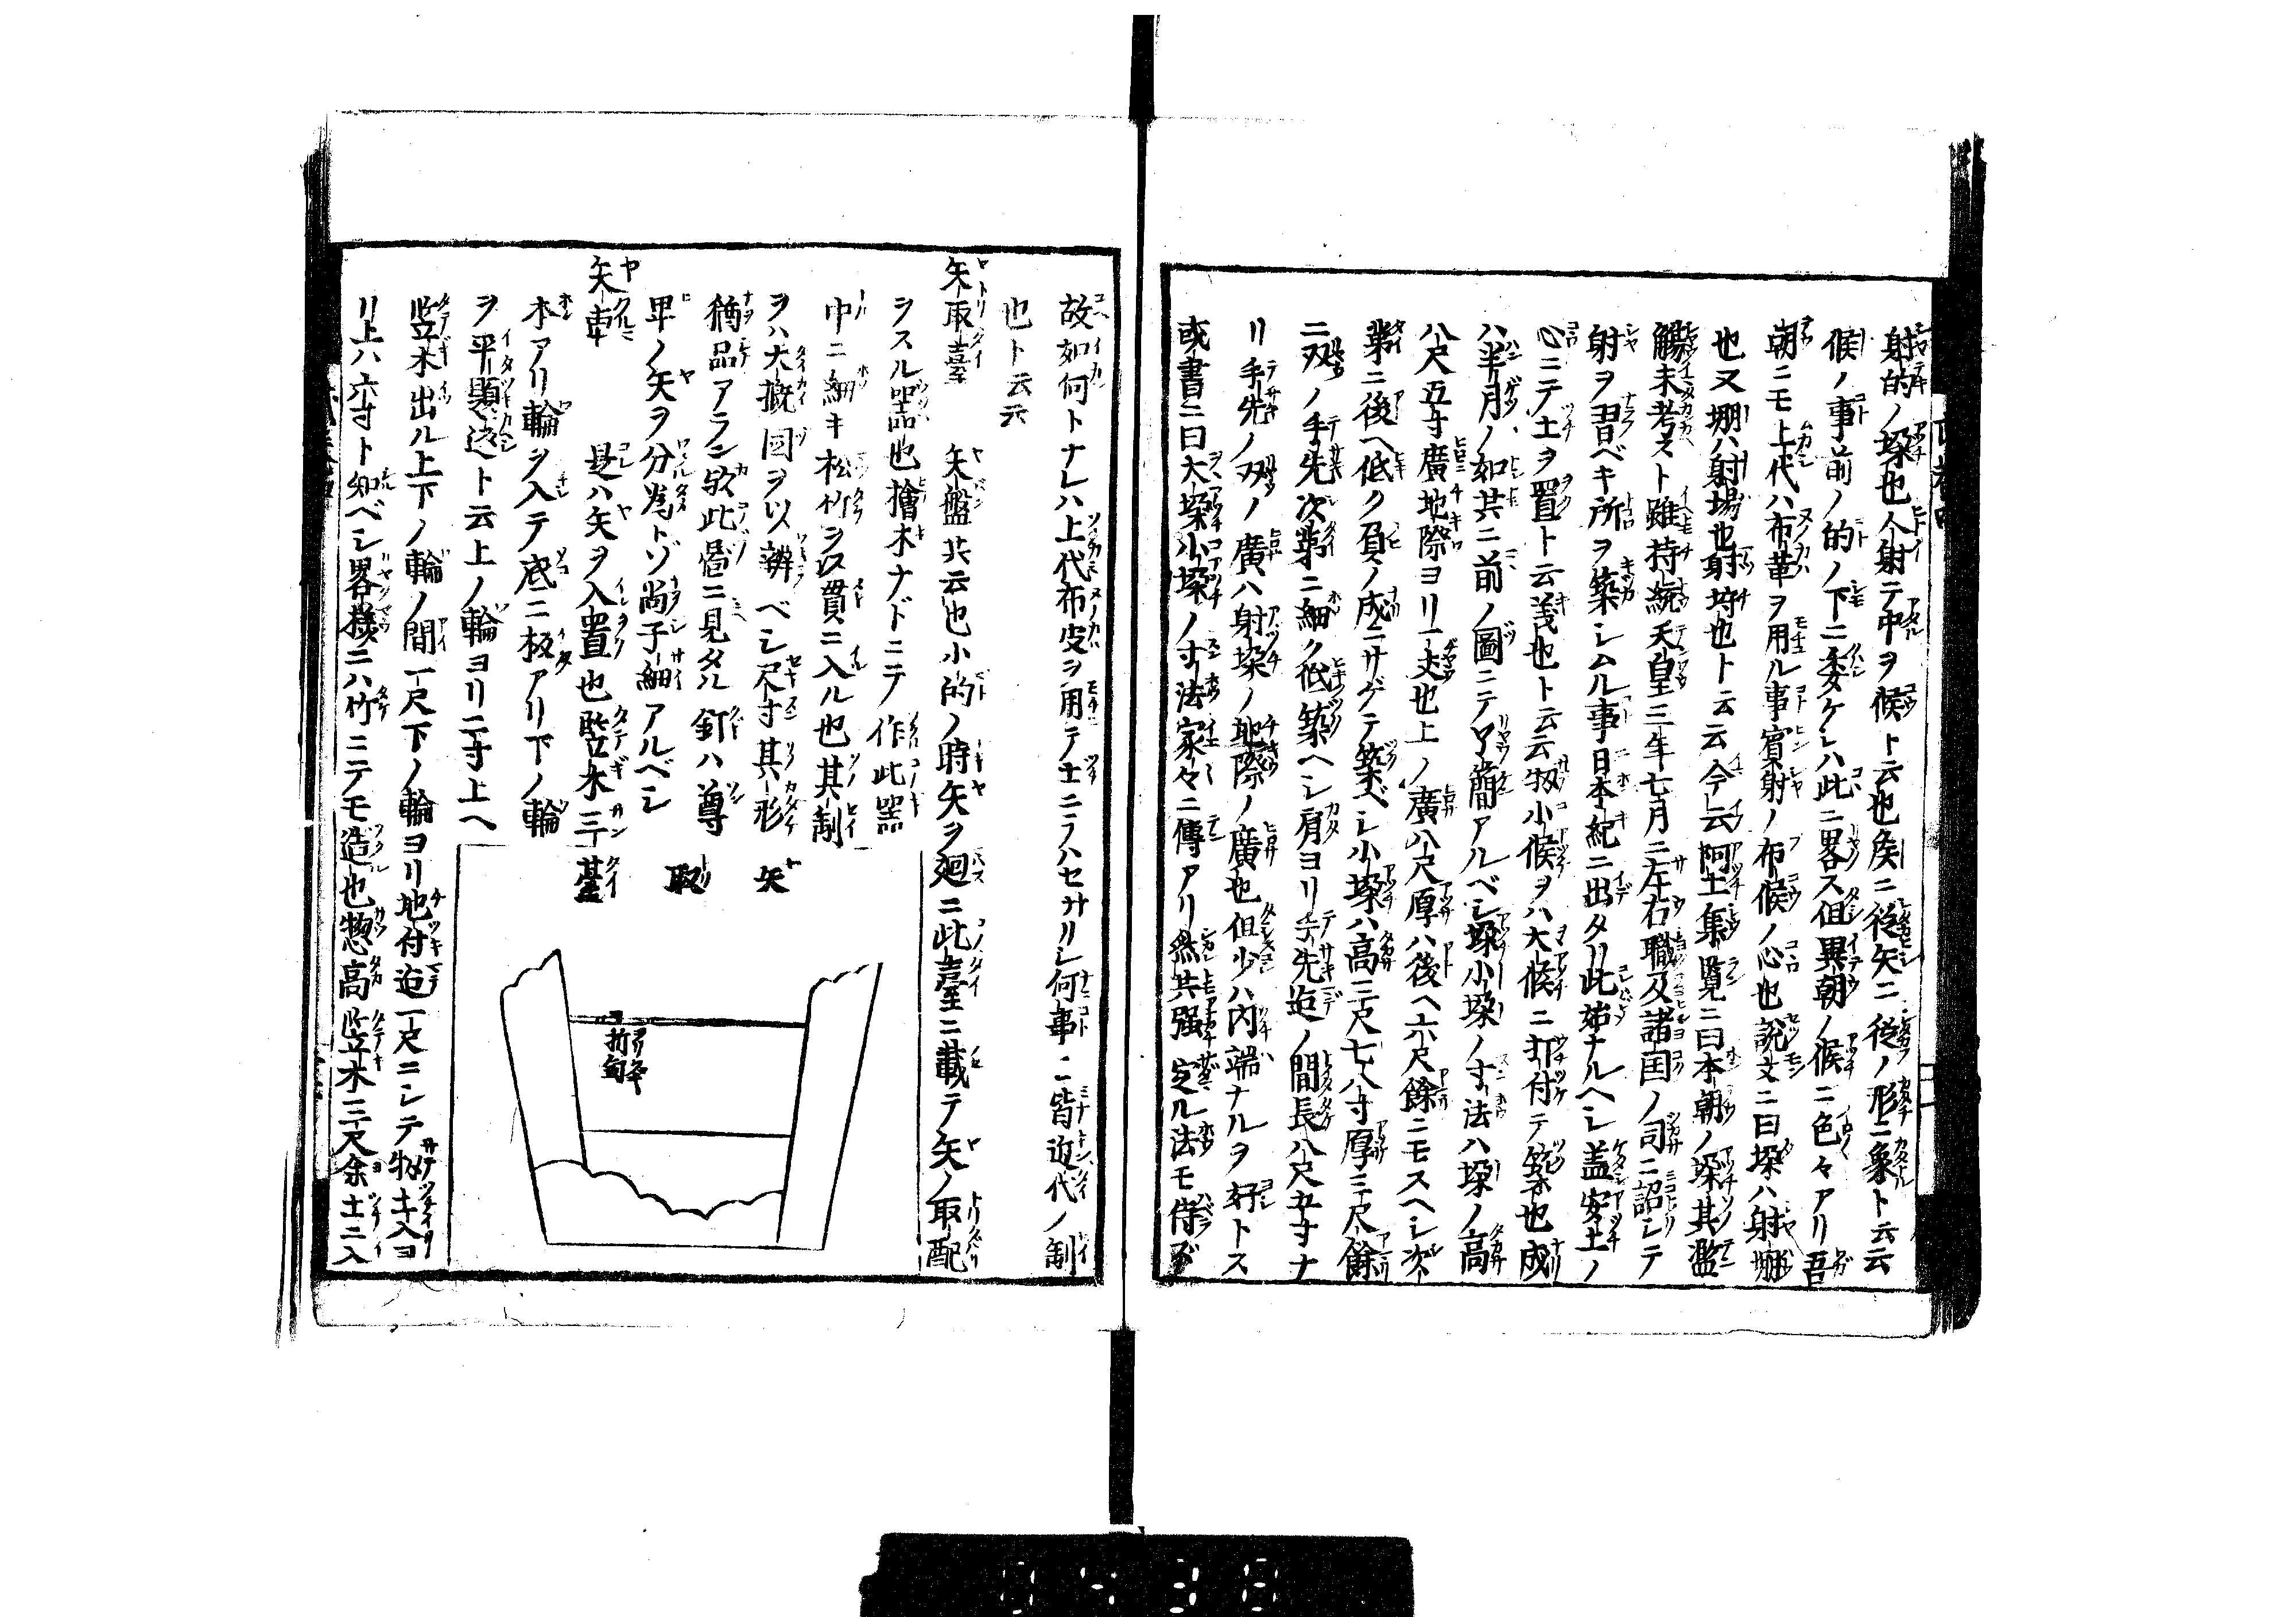 射的ノ垜也人射テ中ヲ候ト云也矦ニ從矢ニ從ノ形ニ象ト云云
候ノ事前ノ的ノ下ニ委ケレハ此ニ畧ス但異朝ノ候ニ色々アリ吾
朝ニモ上代ハ布革ヲ用ル事賓射ノ布候ノ心也說文ニ曰垜ハ射堋
也又堋ハ射場也射垮也ト云云今云阿土集覽ニ曰本朝ノ垜其濫
觴未考スト雖持統天皇三年七月ニ左右職及諸国ノ司ニ詔シテ
射ヲ習ベキ所ヲ築シムル事日本紀ニ出タリ此始ナルヘシ盖安土ノ
心ニテ土ヲ置ト云義也ト云云扨小候ヲハ大候ニ打付テ築也成
ハ半月ノ如其ニ前ノ圖ニテ了簡アルベシ垜小垜ノ寸法ハ垜ノ高
八尺五寸廣地際ヨリ一丈也上ノ廣八尺厚ハ後ヘ六尺餘ニモスヘシ次
第ニ後ヘ低ク負ノ成ニサゲテ築ベシ小垜ハ高三尺七八寸厚三尺餘
ニ刄ノ手先次第ニ細ク低築ヘシ肩ヨリ手先迠ノ間長八尺五寸ナ
リ手先ノ刄ノ廣ハ射垜ノ地際ノ廣也但少ハ內端ナルヲ好トス
或書ニ曰大垜小垜ノ寸法家々ニ傳アリ然共强定ル法モ侍ズ
故如何トナレハ上代布皮ヲ用テ土ニ ハセサリシ何事ニ皆近代ノ制
也ト云云
矢取臺 矢盤共云也小的ノ時矢ヲ廻ニ此臺ニ載テ矢ノ取配
ヲスル噐品也檜木ナドニテ作此噐
中ニ細キ松竹ヲ以貫ニ入ル也其制
ヲハ大概図ヲ以辨ベシ尺寸其形
猶品アラン欤此啚ニ見タル釘ハ尊
卑ノ矢ヲ分為トゾ尚子細アルベシ
矢車 是ハ矢ヲ入置也竪木三
本アリ輪ヲ入テ底ニ板アリ下ノ輪
ヲ平題迠ト云上ノ輪ヨリ二寸上ヘ
竪木出ル上下ノ輪ノ間一尺下ノ輪ヨリ地付迠一尺ニシテ扨土入ヨ
リ上ハ六寸ト知ベシ畧様ニハ竹ニテモ造也惣高竪木三尺余土ニ入
矢
取
臺
折釘